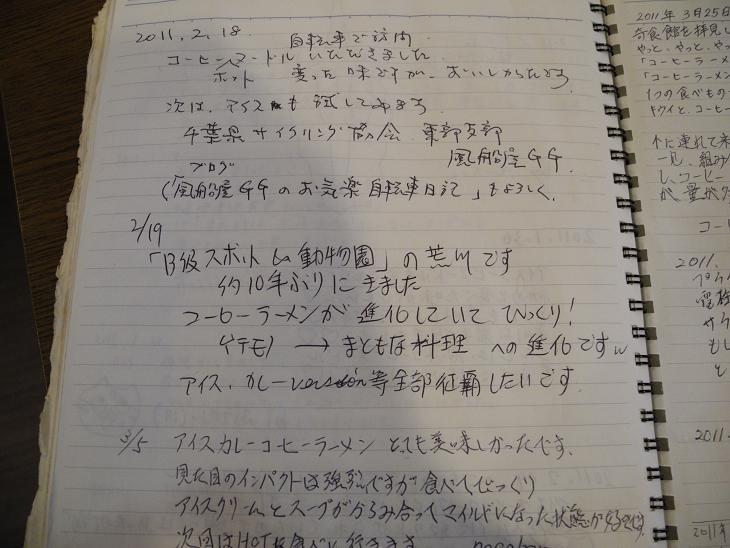 2011.2.18 自転車で訪問
コーヒーヌードルいただきました
ホット 変った味ですが、おいしかったです
次は、アイスも試してみます
千葉県サイクリング協会 東部支部
風船屋GG
ブログ
(「風船屋GGのお気楽自転車日記」もよろしく
2/19
「B級スポット 動物園」の荒川です
約10年ぶりにきました
コーヒーラーメンが進化していてびっくり!
ゲテモノ → まともな料理 への進化ですw
アイス、カレーversion等全部征覇したいです
3/5 アイスカレーコーヒーラーメン とても美味しかったです。
見た目のインパクトは強烈ですが食べてびっくり
アイスクリームとスープがからみ合ってマイルドになった状態が
次回はHOTを食べに行きます
2011年3月25日
奇食館を拝見し
やっと、やっと、やっ
「コーヒーラー
「コーヒーラーメン
1つの食べもの
キウイと、コーヒー
に連れて来
一見、組み
し、コーヒー
が、量が
コー
2011.
もし
と
2011.
2011年